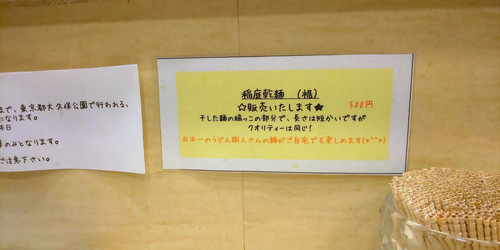 まで、東京都大久保公園で行われる、
になります。
休日
のみとなります。
ご注意下さい。
稲庭乾麺 (裾)
☆販売いたします★ 500円
干した麺の端っこの部分で、長さは短かいですが
クオリティーは同じ!
日本一のうどん職人さんの麺がご自宅でも楽しめます(*^^*)